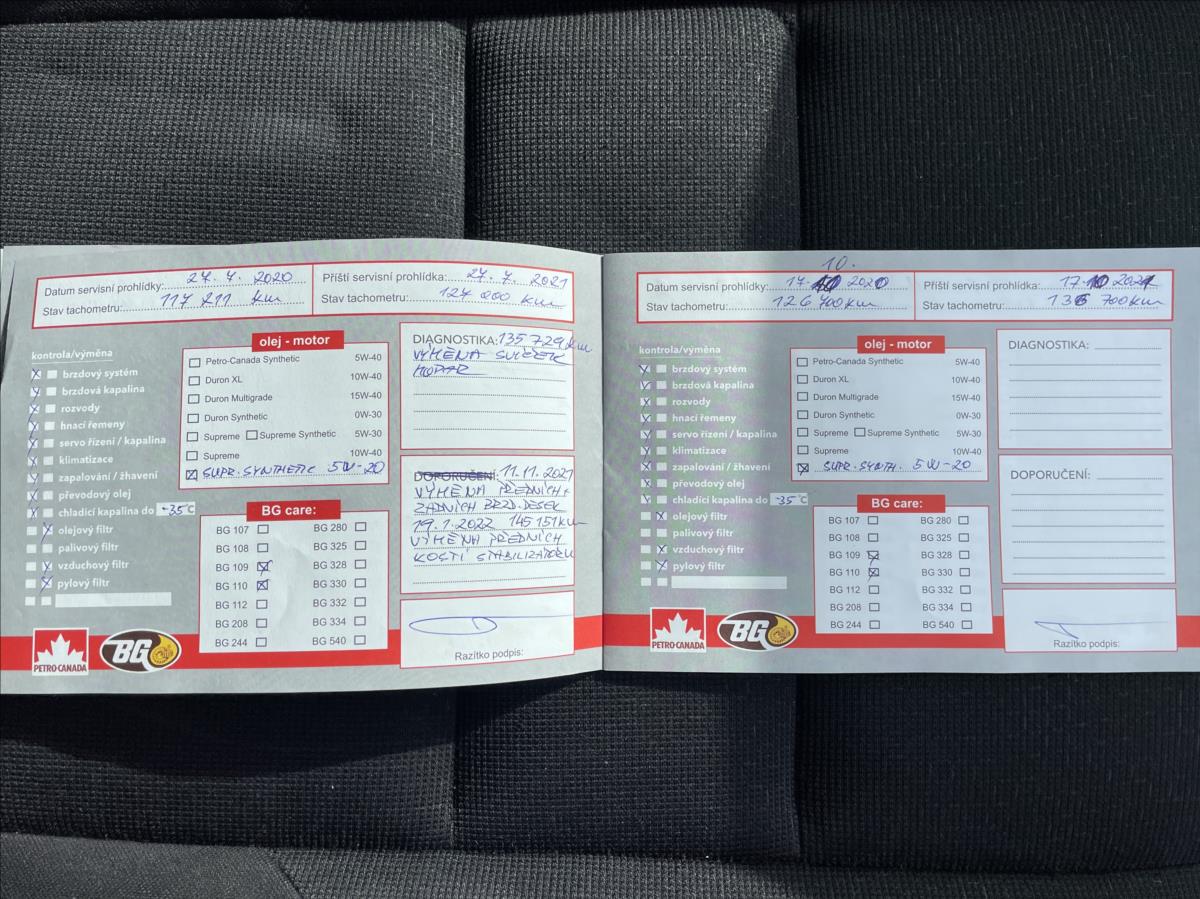 Datum servisní prohlídky: 27.7.2020
Stav tachometru: 117 211 km
Příští servisní prohlídka: 27.7.2021
Stav tachometru: 127 200 km
kontrola/výměna
brzdový systém
brzdová kapalina
rozvody
hnací řemeny
servo řízení / kapalina
klimatizace
zapalování / žhavení
převodový olej
chladící kapalina do -35°C
olejový filtr
palivový filtr
vzduchový filtr
pylový filtr
olej - motor
Petro-Canada Synthetic 5W-40
Duron XL 10W-40
Duron Multigrade 15W-40
Duron Synthetic 0W-30
Supreme Supreme Synthetic 5W-30
Supreme 10W-40
SUPR. SYNTHETIC 5W-20
BG care:
BG 107 BG 280
BG 108 BG 325
BG 109 BG 328
BG 110 BG 330
BG 112 BG 332
BG 208 BG 334
BG 244 BG 540
DIAGNOSTIKA: 135 729 km
VÝMĚNA SVÍČEK
MOPAR
DOPORUČENÍ: 11.11.2021
VÝMĚNA PŘEDNÍCH +
ZADNÍCH BRZD. DESEK
19.1.2022 145 151 km
VÝMĚNA PŘEDNÍCH
KOSTÍ STABILIZÁTORU
Razítko podpis:
PETRO-CANADA
BG
10.
Datum servisní prohlídky: 17. 2020
Stav tachometru: 126 700 km
Příští servisní prohlídka: 17.10 2021
Stav tachometru: 136 700 km
kontrola/výměna
brzdový systém
brzdová kapalina
rozvody
hnací řemeny
servo řízení / kapalina
klimatizace
zapalování / žhavení
převodový olej
chladící kapalina do -35°C
olejový filtr
palivový filtr
vzduchový filtr
pylový filtr
olej - motor
Petro-Canada Synthetic 5W-40
Duron XL 10W-40
Duron Multigrade 15W-40
Duron Synthetic 0W-30
Supreme Supreme Synthetic 5W-30
Supreme 10W-40
SUPR. SYNTH. 5W-20
BG care:
BG 107 BG 280
BG 108 BG 325
BG 109 BG 328
BG 110 BG 330
BG 112 BG 332
BG 208 BG 334
BG 244 BG 540
DIAGNOSTIKA:
DOPORUČENÍ:
Razítko podpis:
PETRO-CANADA
BG